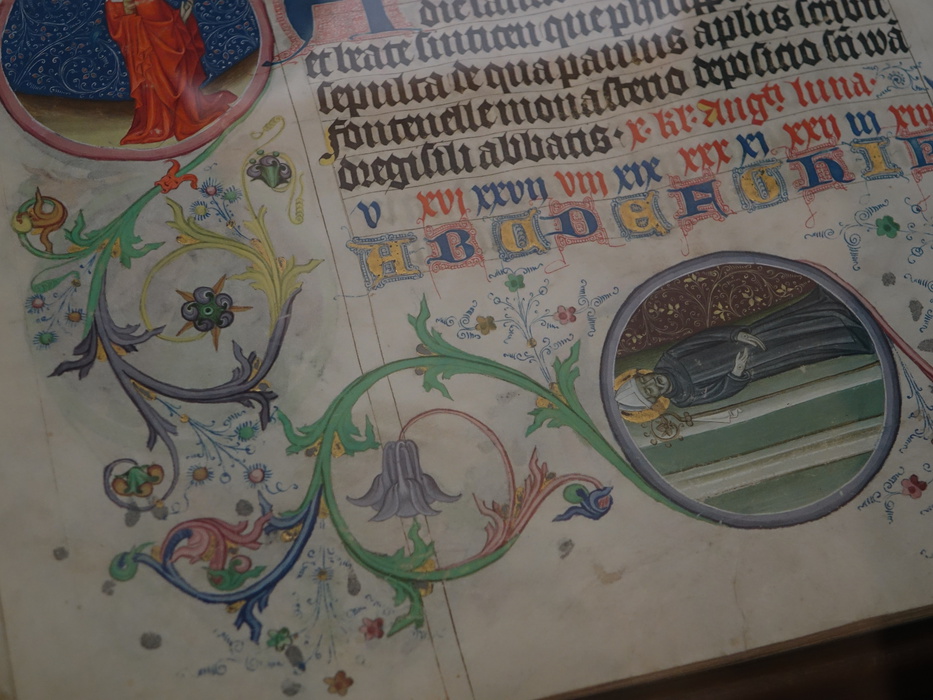 et beate sinticen que philipp
sepulta de qua paulus aplus scribit
fontenelle monasterio deposicio sci wā
dregisili abbatis · x · kl · augti luna ·
v xvi xxvii viii xix xxx xi xxii iii xiiii
A B C D E F G H I K